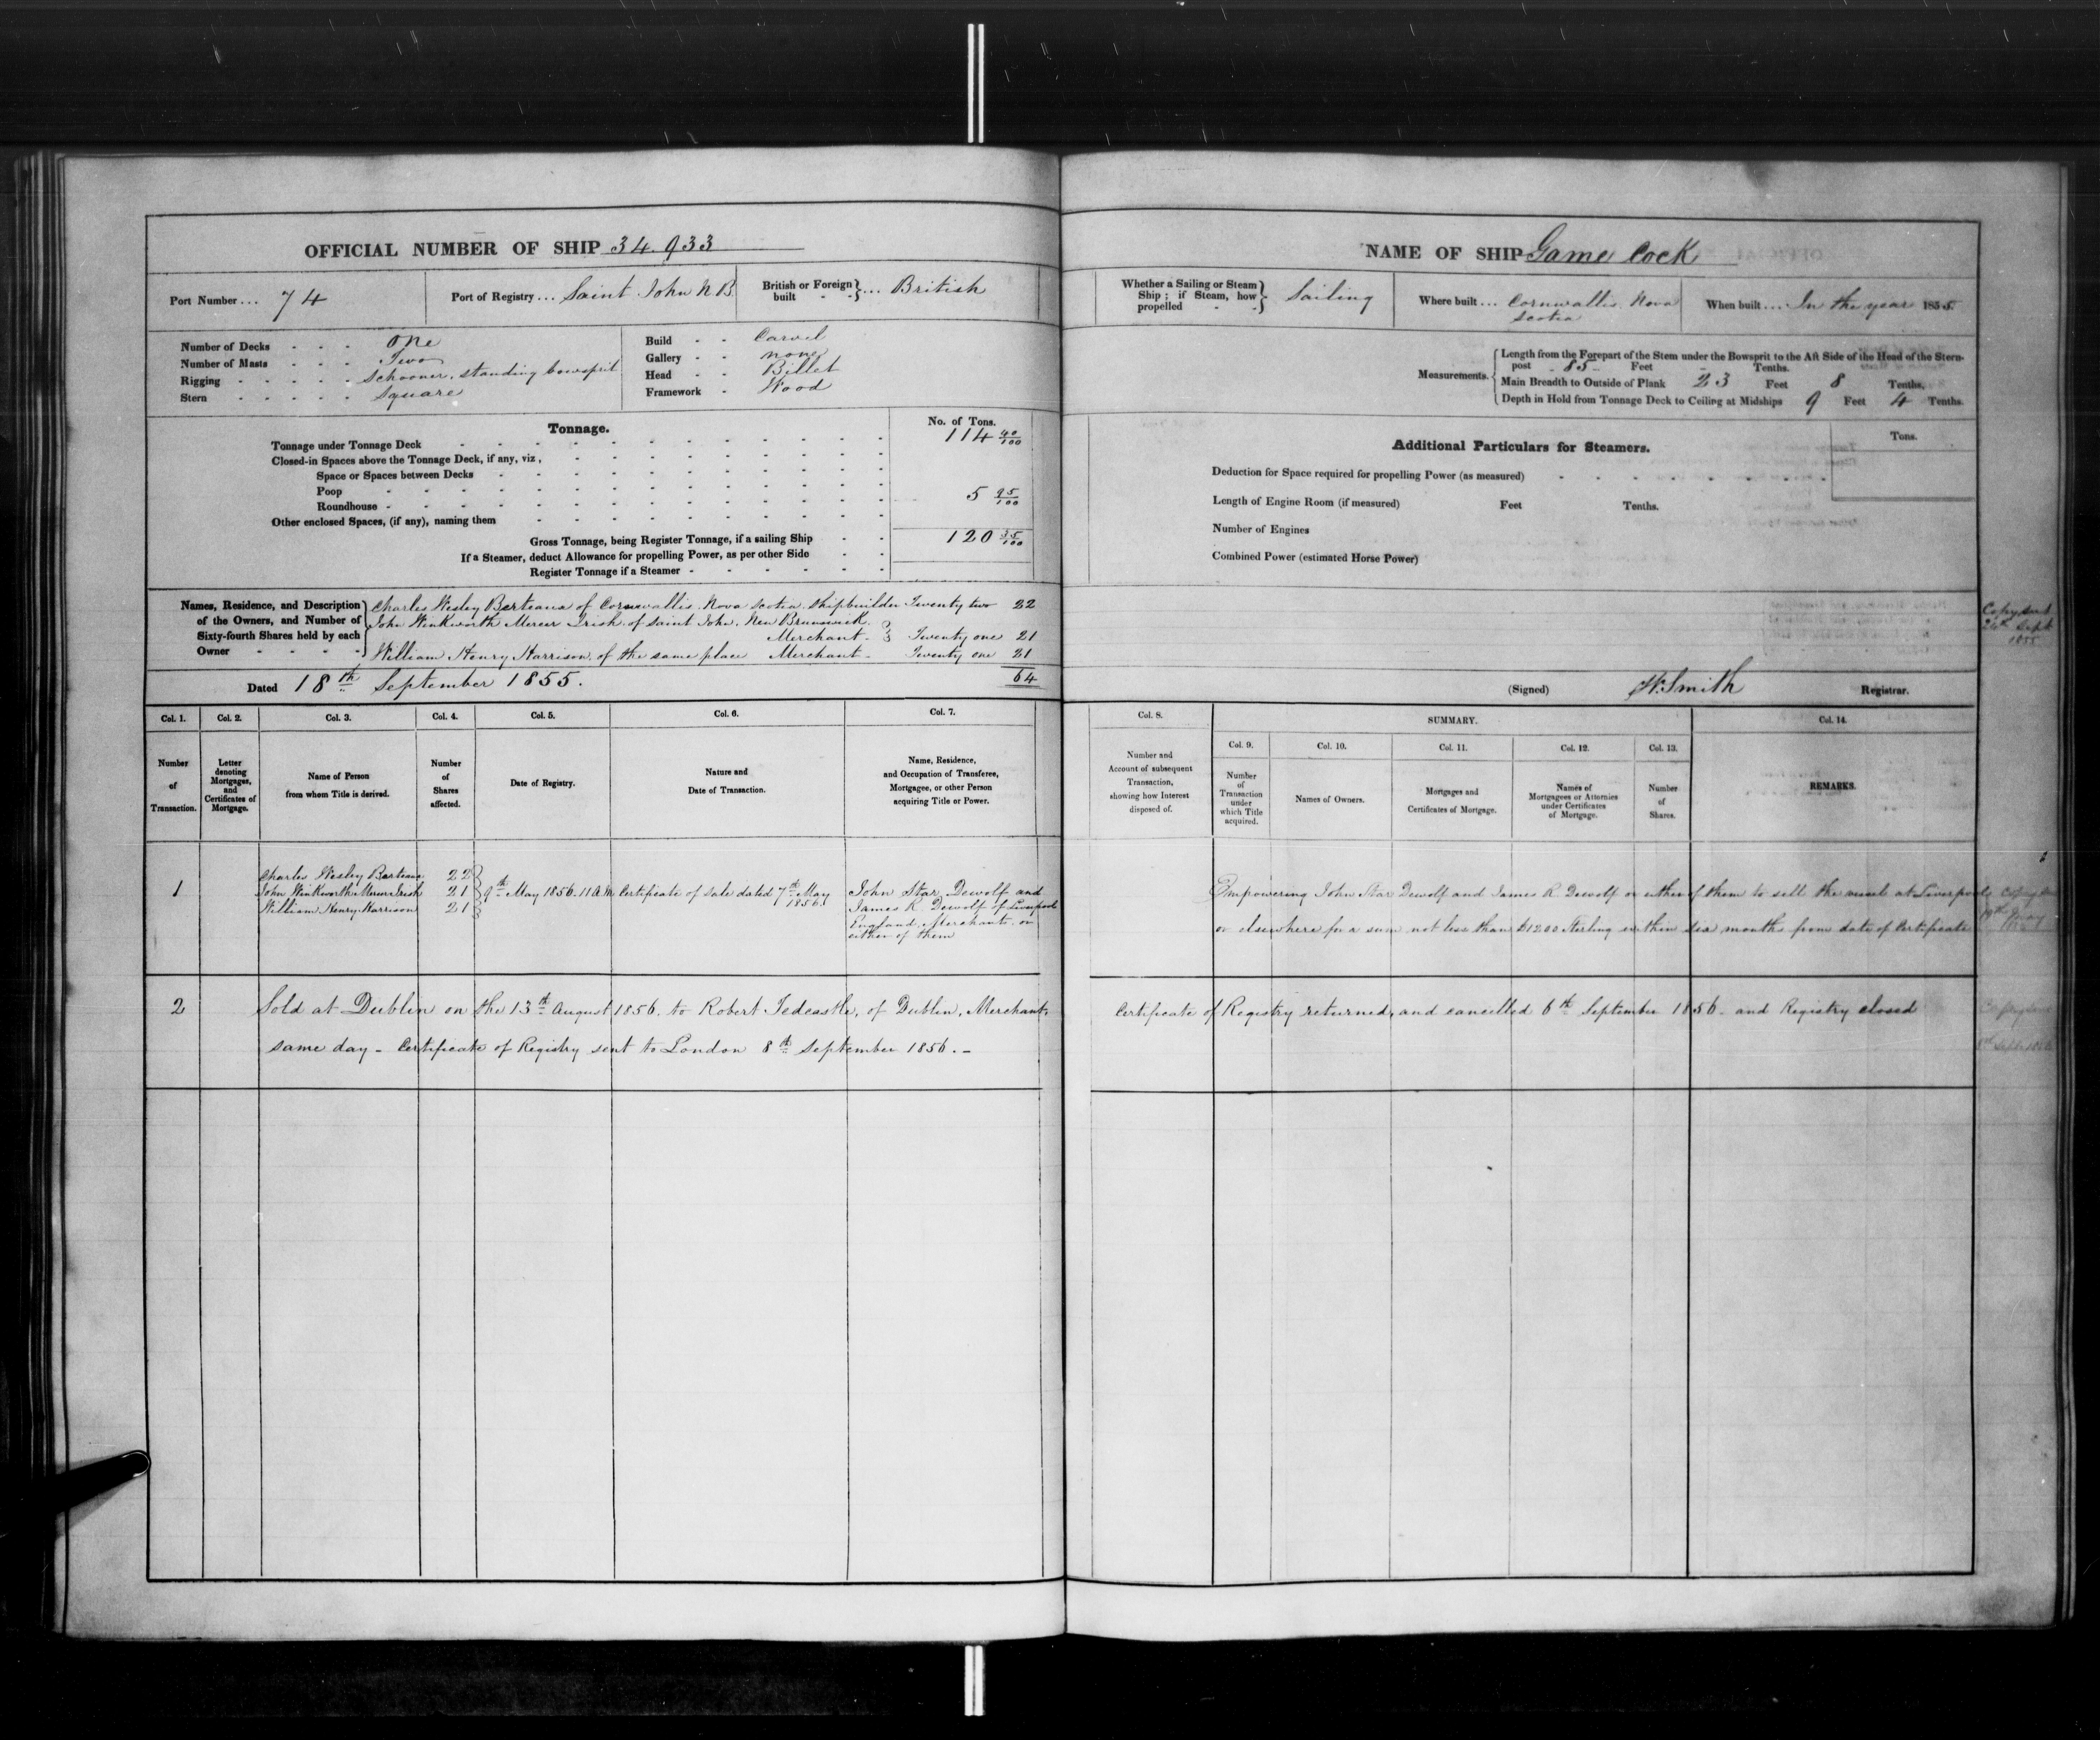 OFFICIAL NUMBER OF SHIP 34.933
Port Number ... 74
Port of Registry ... Saint John N B
British or Foreign built - - } ... British
Number of Decks - - - One
Number of Masts - - - Two
Rigging - - - - - Schooner, standing bowsprit
Stern - - - - - Square
Build - - Carvel
Gallery - - none
Head - - Billet
Framework - Wood
Tonnage.
No. of Tons.
Tonnage under Tonnage Deck 114 40/100
Closed-in Spaces above the Tonnage Deck, if any, viz,
Space or Spaces between Decks
Poop 5 95/100
Roundhouse
Other enclosed Spaces, (if any), naming them
Gross Tonnage, being Register Tonnage, if a sailing Ship 120 35/100
If a Steamer, deduct Allowance for propelling Power, as per other Side
Register Tonnage if a Steamer
Names, Residence, and Description of the Owners, and Number of Sixty-fourth Shares held by each Owner
Charles Wesley Berteaux of Cornwallis. Nova Scotia. Shipbuilder Twenty two 22
John Winkworth Mercer Irish. of Saint John. New Brunswick.
Merchant - Twenty one 21
William Henry Harrison, of the same place Merchant - Twenty one 21
Dated 18th September 1855. 64
Col. 1. Col. 2. Col. 3. Col. 4. Col. 5. Col. 6. Col. 7.
Number of Transaction.
Letter denoting Mortgages, and Certificates of Mortgage.
Name of Person from whom Title is derived.
Number of Shares affected.
Date of Registry.
Nature and Date of Transaction.
Name, Residence, and Occupation of Transferee, Mortgagee, or other Person acquiring Title or Power.
1
Charles Wesley Berteaux 22
John Winkworth Mercer Irish 21
William Henry Harrison 21
9th May 1856. 11 A M
Certificate of Sale dated 7th May
1856.
John Star Dewolf and
James R Dewolf of Liverpool
England, Merchants, or
either of them
2 Sold at Dublin on the 13th August 1856. to Robert Tedcastle, of Dublin, Merchant,
same day - Certificate of Registry sent to London 8th September 1856. -
NAME OF SHIP Game Cock
Whether a Sailing or Steam Ship; if Steam, how propelled - - } Sailing
Where built ... Cornwallis. Nova
Scotia
When built ... In the year 1855
Measurements.
Length from the Forepart of the Stem under the Bowsprit to the Aft Side of the Head of the Stern-
post - 85 - Feet - Tenths.
Main Breadth to Outside of Plank 23 Feet 8 Tenths.
Depth in Hold from Tonnage Deck to Ceiling at Midships 9 Feet 4 Tenths.
Additional Particulars for Steamers.
Tons.
Deduction for Space required for propelling Power (as measured)
Length of Engine Room (if measured) Feet Tenths.
Number of Engines
Combined Power (estimated Horse Power)
Copy sent
24th Sept
1855
(Signed) W. Smith Registrar.
Col. 8.
SUMMARY.
Col. 14.
Col. 9. Col. 10. Col. 11. Col. 12. Col. 13.
Number and Account of subsequent Transaction, showing how Interest disposed of.
Number of Transaction under which Title acquired.
Names of Owners.
Mortgages and Certificates of Mortgage.
Names of Mortgagees or Attornies under Certificates of Mortgage.
Number of Shares.
REMARKS.
Empowering John Star Dewolf and James R Dewolf or either of them to sell the vessel at Liverpool
or elsewhere for a sum not less than £1200 Sterling within six months from date of Certificate
Certificate of Registry returned, and cancelled 6th September 1856 - and Registry closed
Copy sent
8th Sept 1856